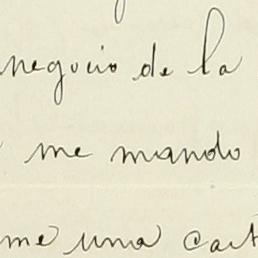 negocio de la
me mando
me una cart